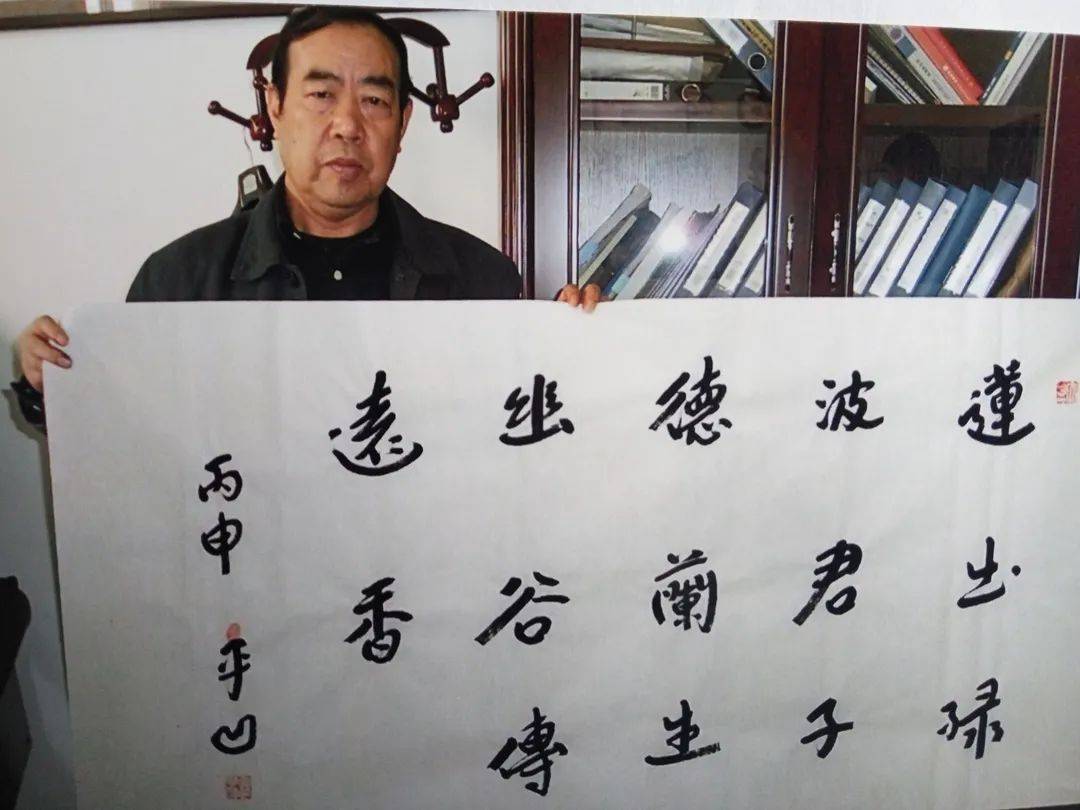 蓮出緑
波君子
德蘭生
幽谷傳
遠香
丙申 平凹